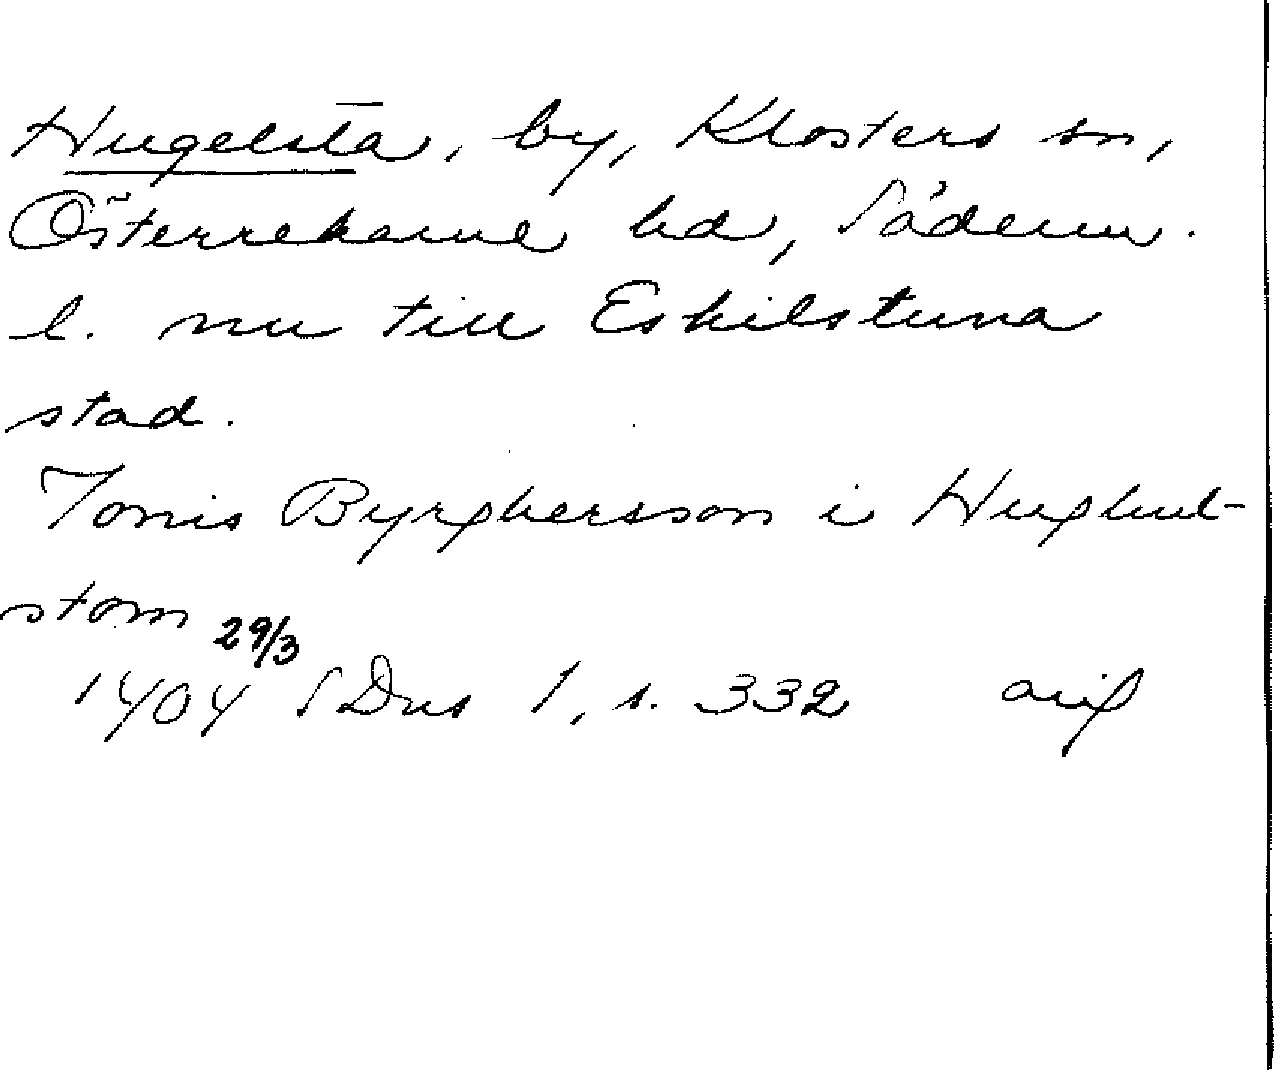 Hugelsta, by, Klosters sn,
Österrekarne hd, Söderm.
l. nu till Eskilstuna
stad.
Tonis Byrghersson i Hughul-
stom
29/3
1404 SDns 1, s. 332 orig